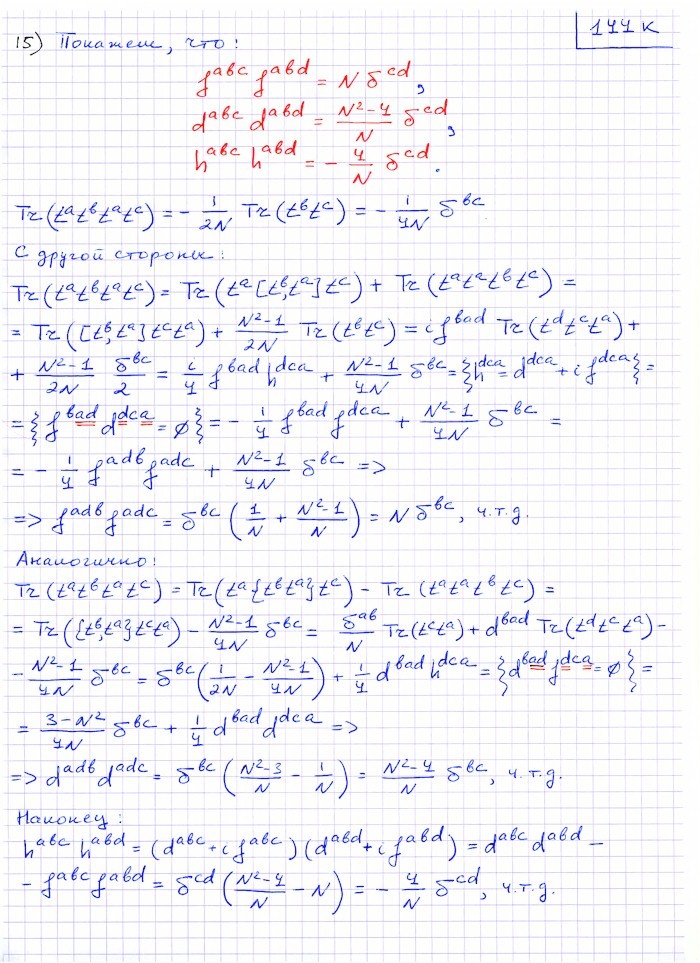 144 к
15) Покажем, что:
f^{abc} f^{abd} = N δ^{cd},
d^{abc} d^{abd} = \frac{N²-4}{N} δ^{cd},
h^{abc} h^{abd} = - \frac{4}{N} δ^{cd}.
Tr(t^a t^b t^a t^c) = - \frac{1}{2N} Tr(t^b t^c) = - \frac{1}{4N} δ^{bc}
С другой стороны:
Tr(t^a t^b t^a t^c) = Tr(t^a [t^b, t^a] t^c) + Tr(t^a t^a t^b t^c) =
= Tr([t^b, t^a] t^c t^a) + \frac{N²-1}{2N} Tr(t^b t^c) = i f^{bad} Tr(t^d t^c t^a) +
+ \frac{N²-1}{2N} \frac{δ^{bc}}{2} = \frac{i}{4} f^{bad} h^{dca} + \frac{N²-1}{4N} δ^{bc} = {h^{dca} = d^{dca} + i f^{dca}} =
= {f^{bad} d^{dca} = ∅} = - \frac{1}{4} f^{bad} f^{dca} + \frac{N²-1}{4N} δ^{bc} =
= - \frac{1}{4} f^{adb} f^{adc} + \frac{N²-1}{4N} δ^{bc} =>
=> f^{adb} f^{adc} = δ^{bc} (\frac{1}{N} + \frac{N²-1}{N}) = N δ^{bc}, ч.т.д.
Аналогично:
Tr(t^a t^b t^a t^c) = Tr(t^a {t^b t^a} t^c) - Tr(t^a t^a t^b t^c) =
= Tr({t^b, t^a} t^c t^a) - \frac{N²-1}{4N} δ^{bc} = \frac{δ^{ab}}{N} Tr(t^c t^a) + d^{bad} Tr(t^d t^c t^a) -
- \frac{N²-1}{4N} δ^{bc} = δ^{bc} (\frac{1}{2N} - \frac{N²-1}{4N}) + \frac{1}{4} d^{bad} h^{dca} = {d^{bad} f^{dca} = ∅} =
= \frac{3-N²}{4N} δ^{bc} + \frac{1}{4} d^{bad} d^{dca} =>
=> d^{adb} d^{adc} = δ^{bc} (\frac{N²-3}{N} - \frac{1}{N}) = \frac{N²-4}{N} δ^{bc}, ч.т.д.
Наконец:
h^{abc} h^{abd} = (d^{abc} + i f^{abc}) (d^{abd} + i f^{abd}) = d^{abc} d^{abd} -
- f^{abc} f^{abd} = δ^{cd} (\frac{N²-4}{N} - N) = - \frac{4}{N} δ^{cd}, ч.т.д.